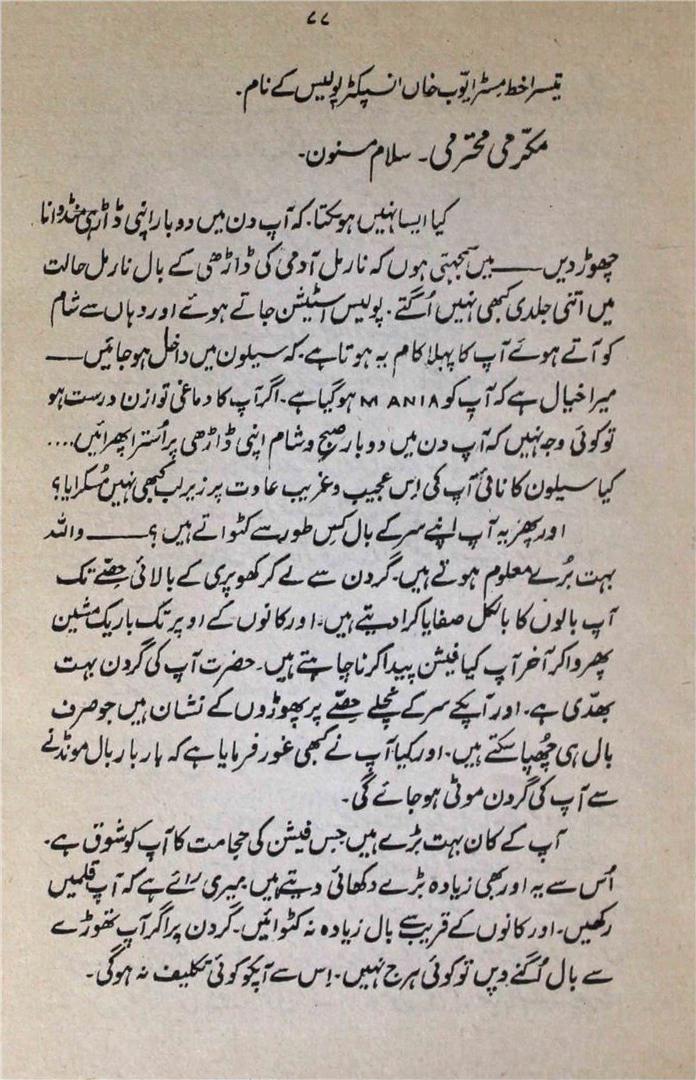 ۷۷
تیسرا خط مسٹر ایوب خاں انسپکٹر پولیس کے نام۔
مکرمی محترمی۔ سلام مسنون۔
کیا ایسا نہیں ہوسکتا۔ کہ آپ دن میں دو بار اپنی ڈاڑھی منڈوانا
چھوڑ دیں —— میں سمجھتی ہوں کہ نارمل آدمی کی ڈاڑھی کے بال نارمل حالت
میں اتنی جلدی کبھی نہیں اُگتے۔ پولیس اسٹیشن جاتے ہوئے اور وہاں سے شام
کو آتے ہوئے آپ کا پہلا کام یہ ہوتا ہے کہ سیلون میں داخل ہوجائیں ——
میرا خیال ہے کہ آپ کو MANIA ہوگیا ہے۔ اگر آپ کا دماغی توازن درست ہو
تو کوئی وجہ نہیں کہ آپ دن میں دوبار صبح و شام اپنی ڈاڑھی پر اُسترا پھرائیں....
کیا سیلون کا نائی آپ کی اِس عجیب و غریب عادت پر زیرِ لب کبھی نہیں مُسکرایا؟
اور پھر یہ آپ اپنے سر کے بال کس طور سے کٹواتے ہیں؟ —— واللہ
بہت بُرے معلوم ہوتے ہیں۔ گردن سے لے کر کھوپری کے بالائی حصّے تک
آپ بالوں کا بالکل صفایا کرا دیتے ہیں۔ اور کانوں کے اوپر تک باریک مشین
پھروا کر آخر آپ کیا فیشن پیدا کرنا چاہتے ہیں۔ حضرت آپ کی گردن بہت
بھدّی ہے۔ اور آپکے سر کے نچلے حصّے پر پھوڑوں کے نشان ہیں جو صرف
بال ہی چُھپا سکتے ہیں۔ اور کیا آپ نے کبھی غور فرمایا ہے کہ بار بار بال مونڈنے
سے آپ کی گردن موٹی ہو جائے گی۔
آپ کے کان بہت بڑے ہیں جس فیشن کی حجامت کا آپ کو شوق ہے۔
اُس سے یہ اور بھی زیادہ بڑے دکھائی دیتے ہیں۔ میری رائے ہے کہ آپ قلمیں
رکھیں۔ اور کانوں کے قریب سے بال زیادہ نہ کٹوائیں۔ گردن پر اگر آپ تھوڑے
سے بال اُگنے دیں تو کوئی ہرج نہیں۔ اِس سے آپکو کوئی تکلیف نہ ہوگی۔